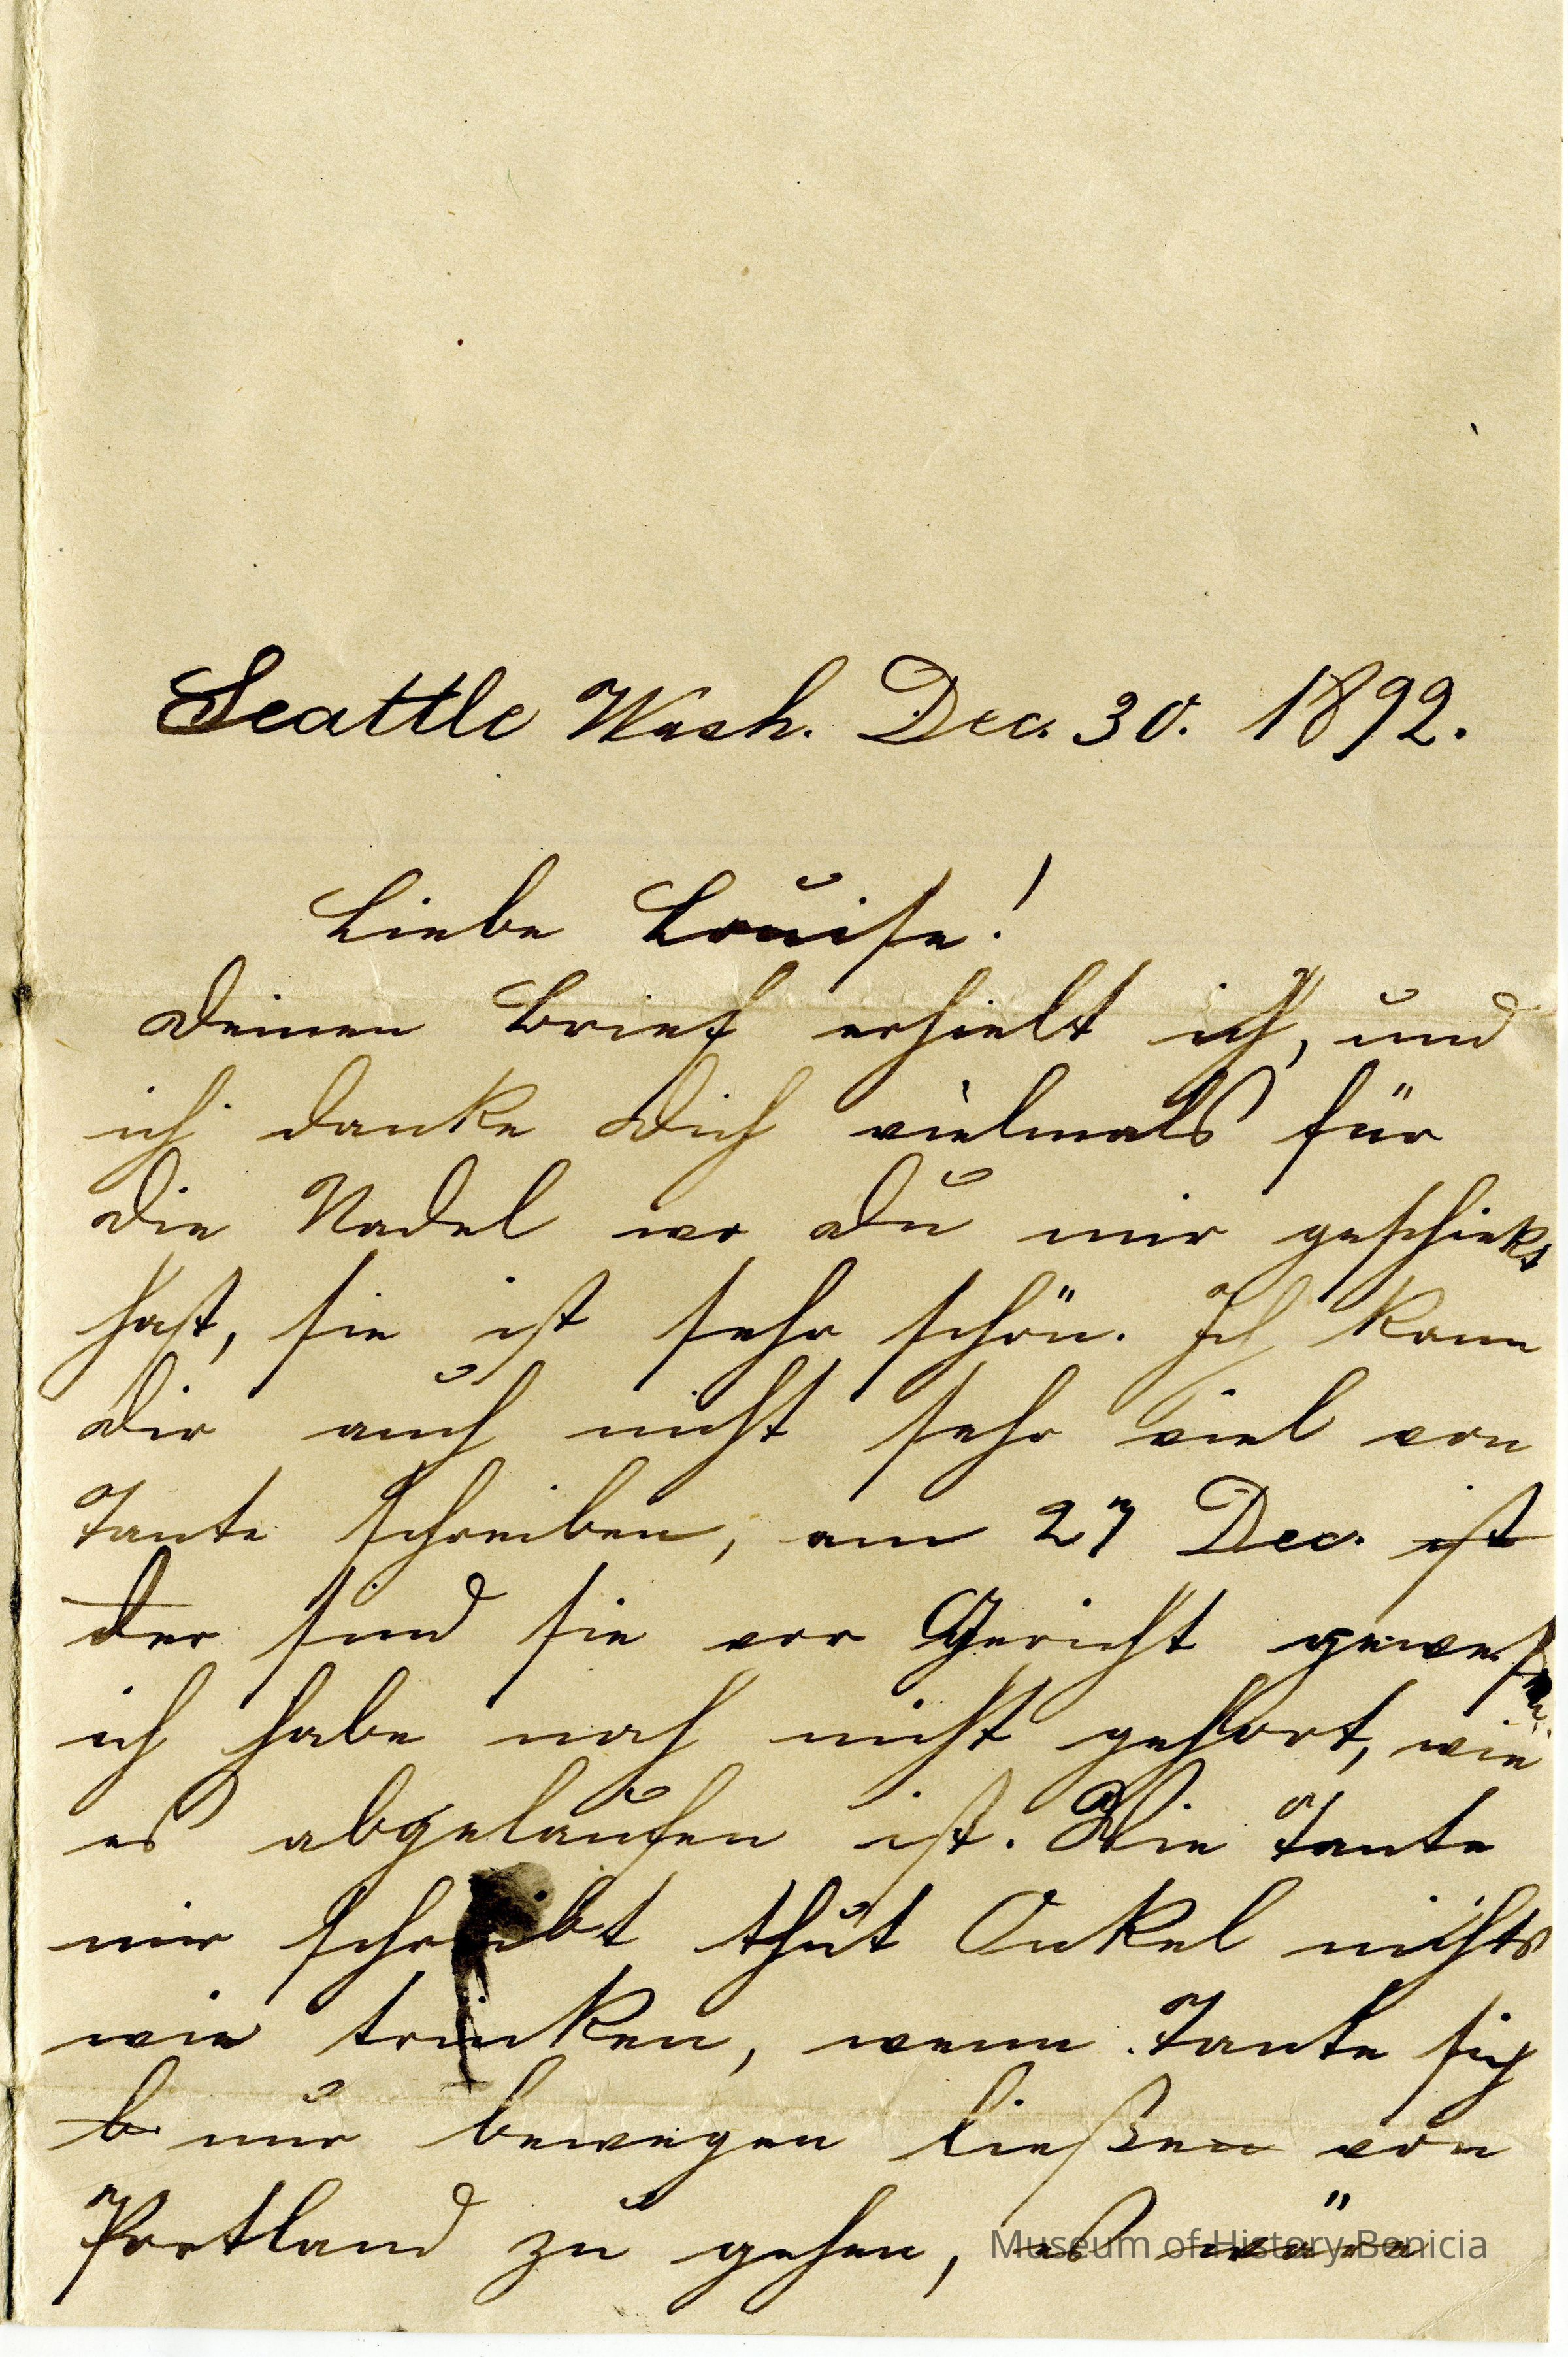 Seattle Wash. Dec. 30. 1892.
Liebe Louise!
Deinen Brief erhielt ich, und
ich danke Dich vielmals für
die Nadel wo Du mir geschickt
hast, sie ist sehr schön. Ich kann
Dir auch nicht sehr viel von
Tante schreiben, am 27 Dec. ist
der sind sie vor Gericht gewesen
ich habe noch nicht gehört, wie
es abgelaufen ist. Wie Tante
mir schreibt thut Onkel nichts
wie trinken, wenn Tante sich
b nur bewegen ließen von
Portland zu gehen, es wäre
Museum of History Benicia